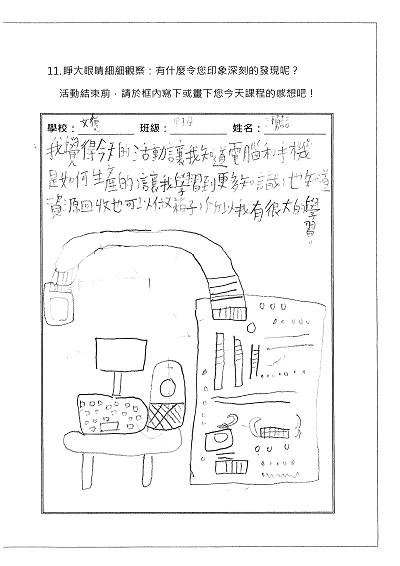 11.睜大眼睛細細觀察：有什麼令您印象深刻的發現呢？
活動結束前，請於框內寫下或畫下您今天課程的感想吧！
學校： 班級： 姓名：
我覺得今天的活動讓我知道電腦和手機
是如何生產的，讓我學習到更多知識，也知道
資源回收也可以做箱子，所以我有很大的學
習。